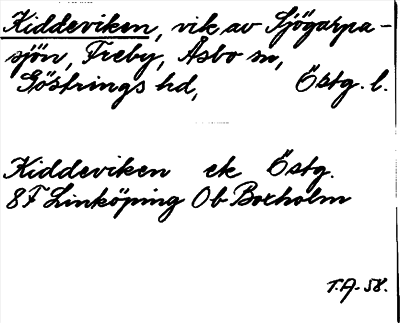 Kiddeviken, vik av Sjögarpa-
sjön, Treby, Åsbo sn,
Göstrings hd, Östg. l.
Kiddeviken ek Östg.
8F Linköping Ob Boxholm
T.A-58.